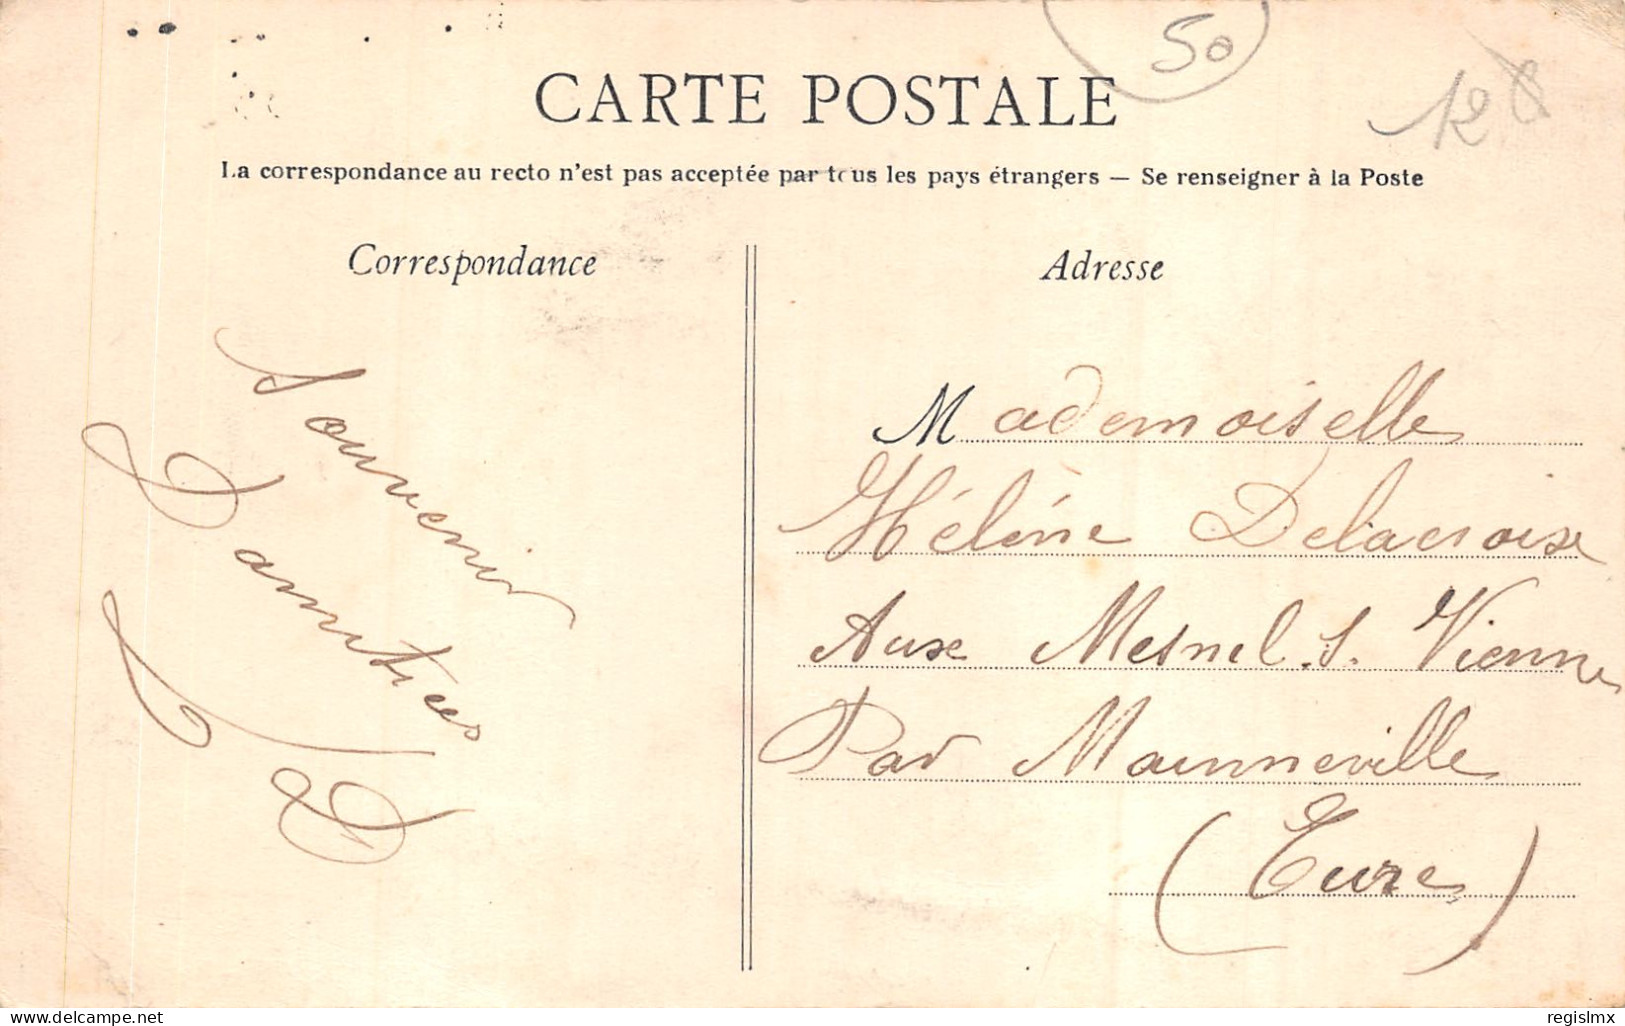 50
12
CARTE POSTALE
La correspondance au recto n'est pas acceptée par tous les pays étrangers — Se renseigner à la Poste
Correspondance
Souvenir
Damitiées
LD
Adresse
Mademoiselle
Hélène Delacroix
Aux Mesnel. S. Vienne
Par Mainneville
(Eure)
www.delcampe.net
regislmx